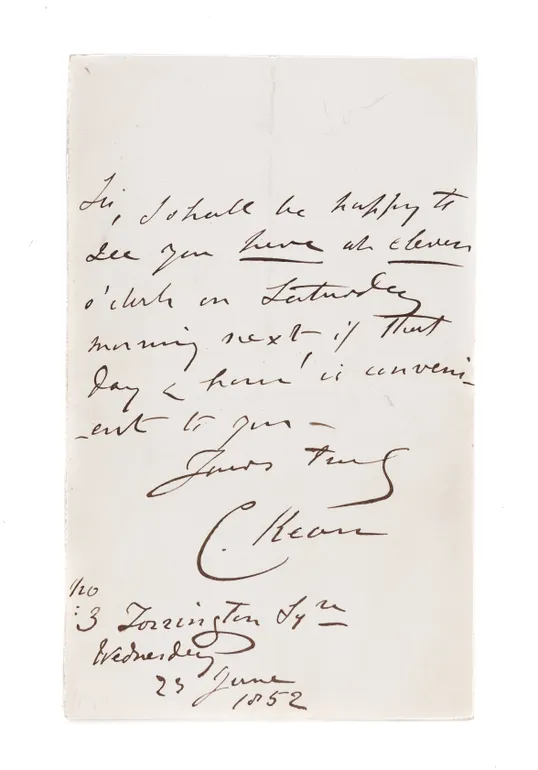 Sir, I shall be happy to
see you here at eleven
o'clock on Saturday
morning next if that
day & hour is conveni-
-ent to you -
Yours truly
C. Kean
No
3 Torrington Sqre
Wednesday
23 June
1852